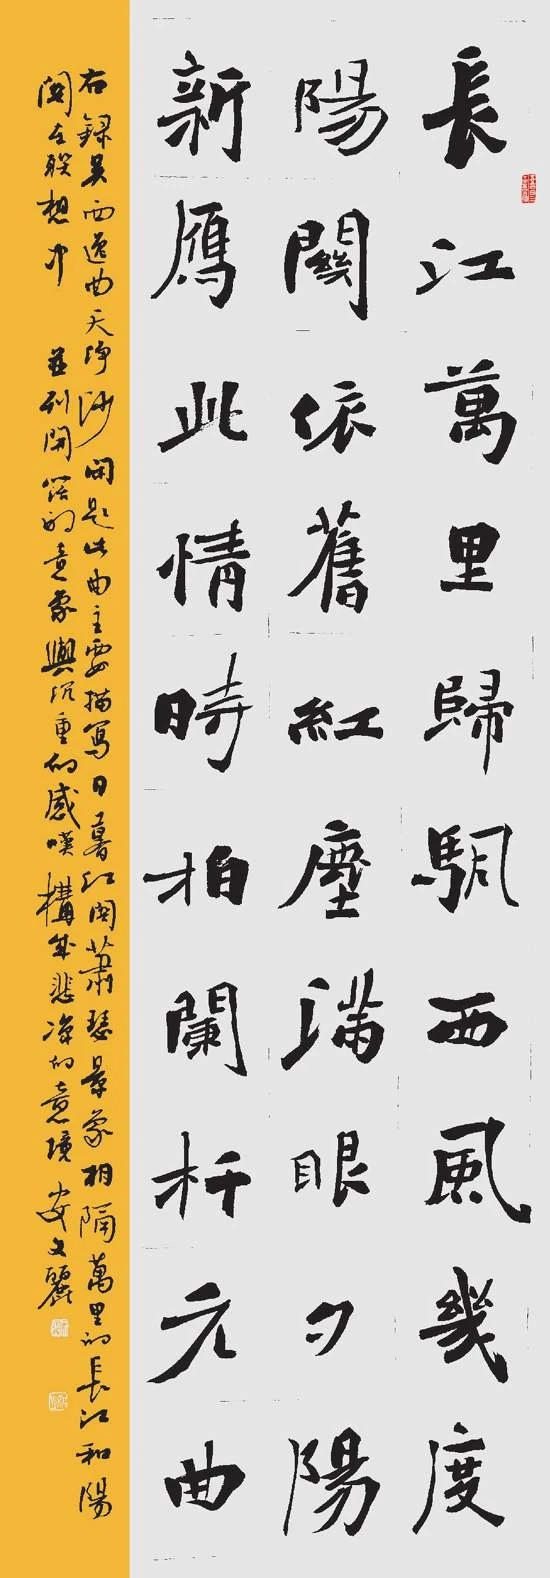 長江萬里歸颿西風幾度
陽關依舊紅塵滿眼夕陽
新鴈此情時拍闌杆元曲
右録吳西逸曲天净沙閑題此曲主要描寫日暮江関蕭瑟景象相隔萬里的長江和陽
関在聯想中並列開闊的意象與沉重的感嘆構成悲凉的意境 安文麗